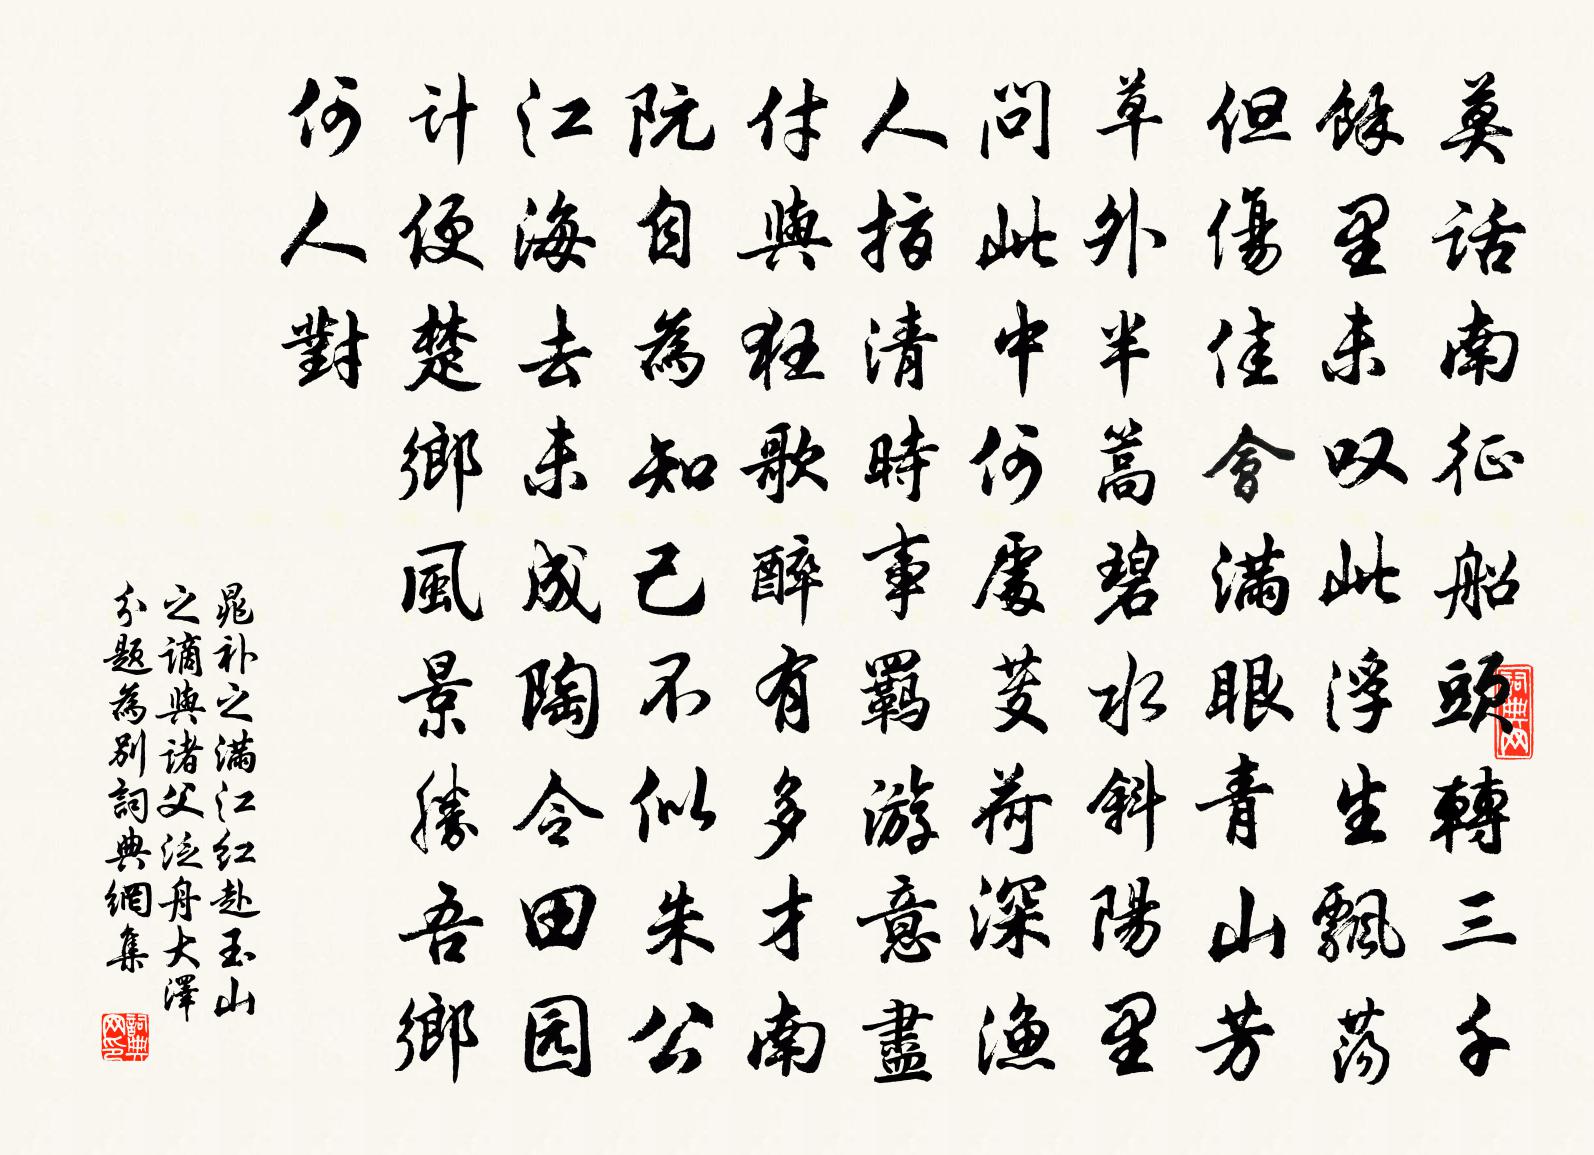 莫话南征船頭轉三千
餘里未叹此浮生飄荡
但傷佳會满眼青山芳
草外半蒿碧水斜陽里
問此中何處芰荷深渔
人指清時事羁游意盡
付與狂歌醉有多才南
阮自為知己不似朱公
江海去未成陶令田园
计便楚鄉風景勝吾鄉
何人對
晁补之满江红赴玉山
之谪與诸父泛舟大澤
分题為别詞典網集
詞典网
詞典网印